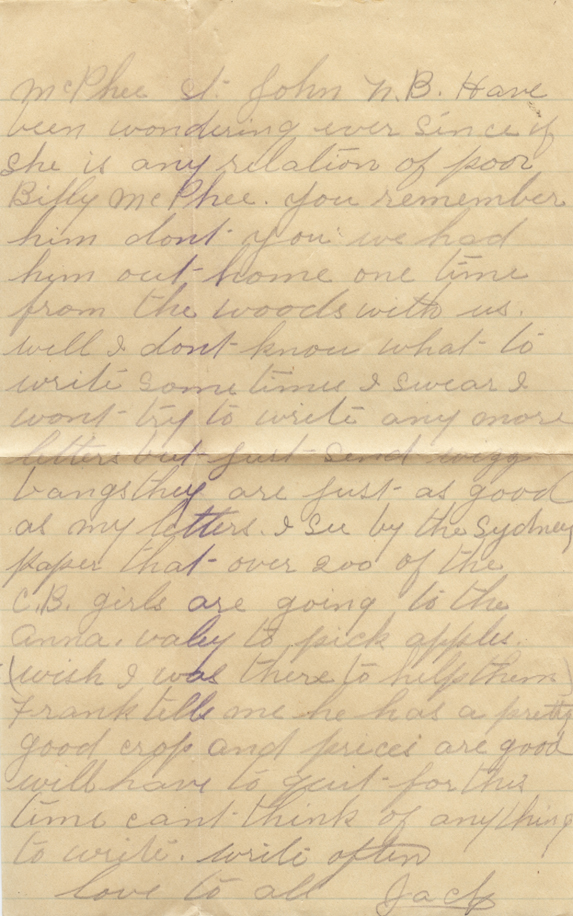 McPhee St. John N.B. Have
been wondering ever since if
she is any relation of poor
Billy McPhee. you remember
him dont you we had
him out home one time
from the woods with us.
well I dont know what to
write sometimes I swear I
wont try to write any more
letters but just send
bangs they are just as good
as my letters. I see by the Sydney
paper that over 200 of the
C.B. girls are going to the
Anna. valey to pick apples.
(wish I was there to help them)
Frank tells me he has a pretty
good crop and prices are good
will have to quit for this
time cant think of anything
to write. write often
love to all Jack